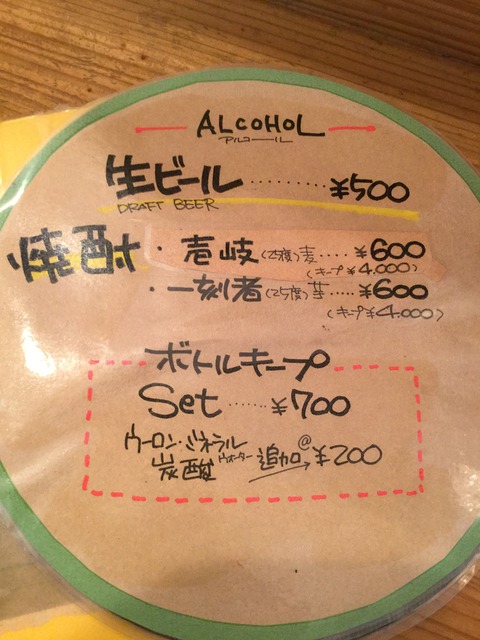 ALCOHOL
アルコール
生ビール ········· ¥500
DRAFT BEER
焼酎 ・壱岐 (25度) 麦 ····· ¥600
(キープ ¥4,000)
・一刻者 (25度) 芋 ····· ¥600
(キープ ¥4,000)
ボトルキープ
Set ······ ¥700
ウーロン・ミネラル
炭酸 ウォーター 追加 @ ¥200